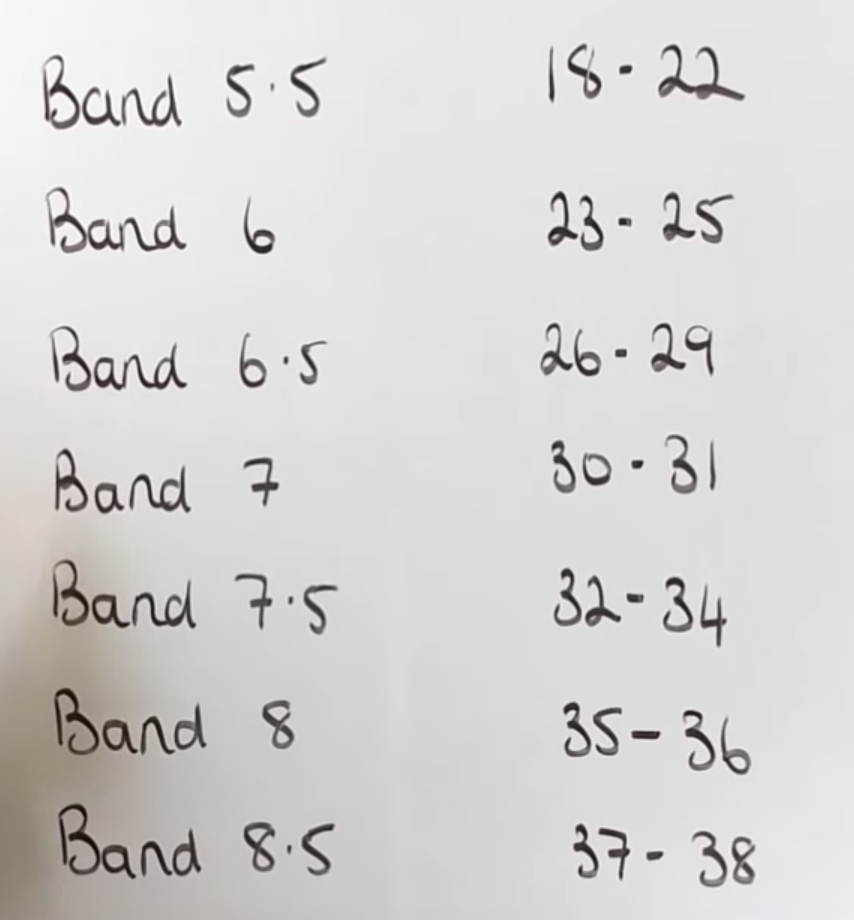 Band 5.5 18-22
Band 6 23-25
Band 6.5 26-29
Band 7 30-31
Band 7.5 32-34
Band 8 35-36
Band 8.5 37-38